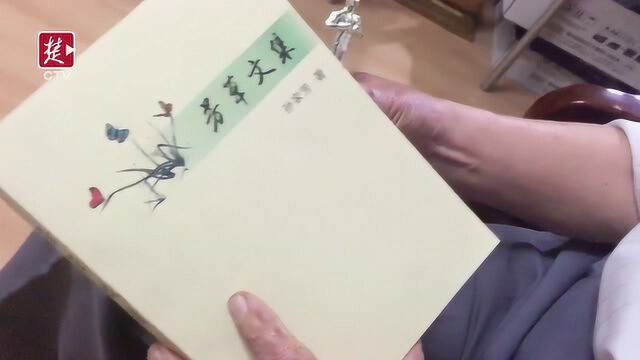 楚
CTV
芳草文集
著